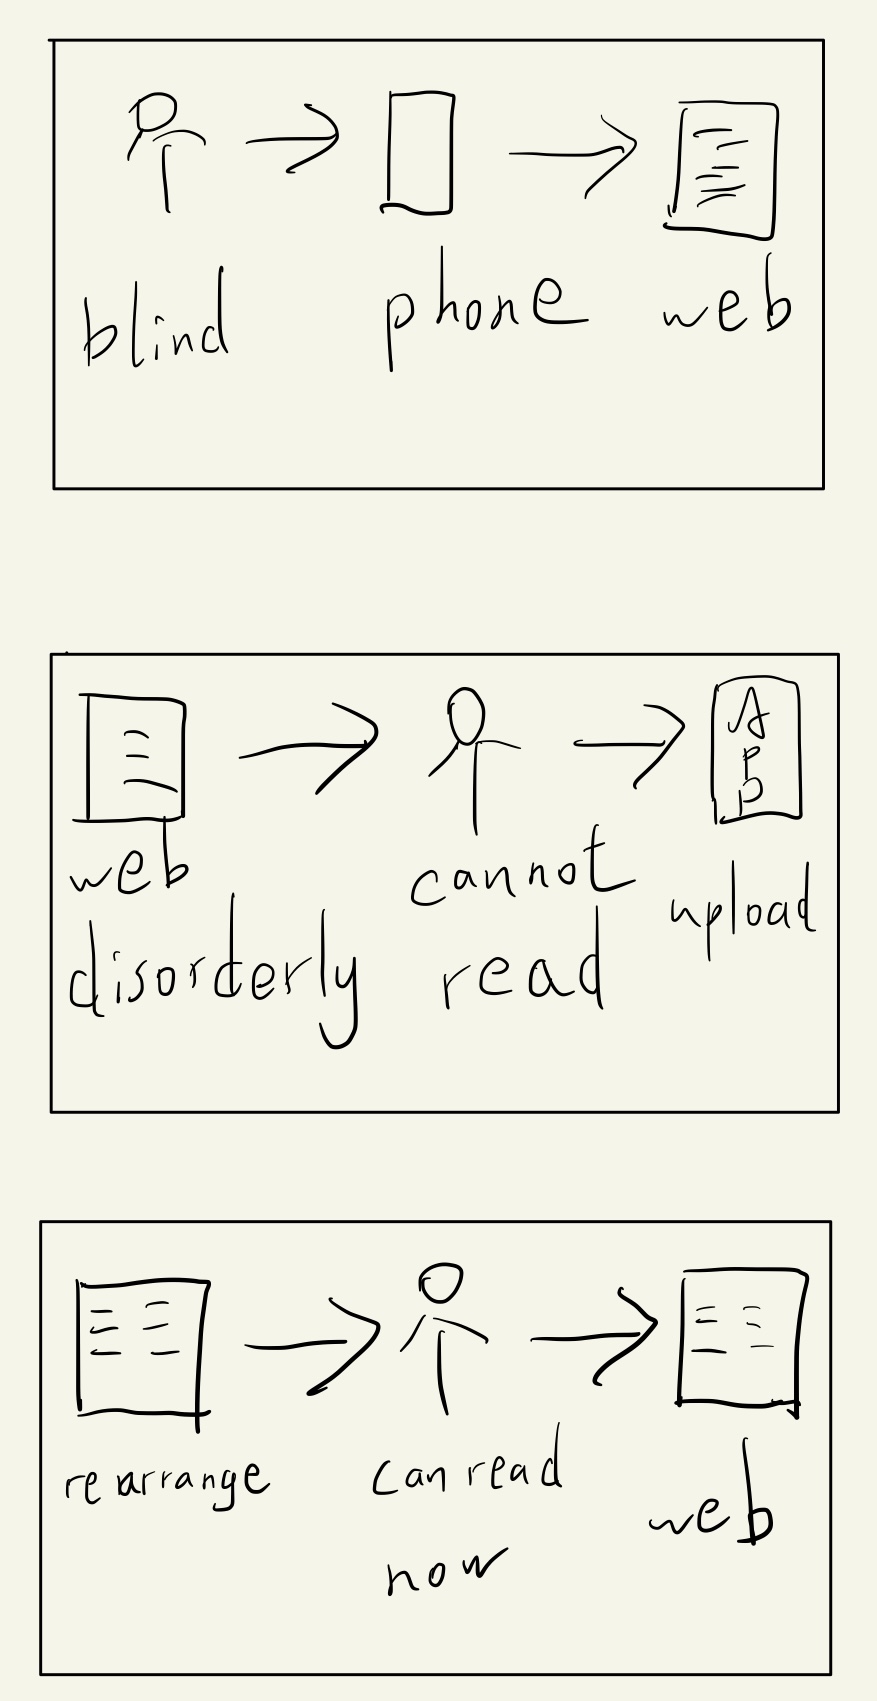 blind
phone
web
App
web
disorderly
cannot
read
upload
rearrange
can read
now
web